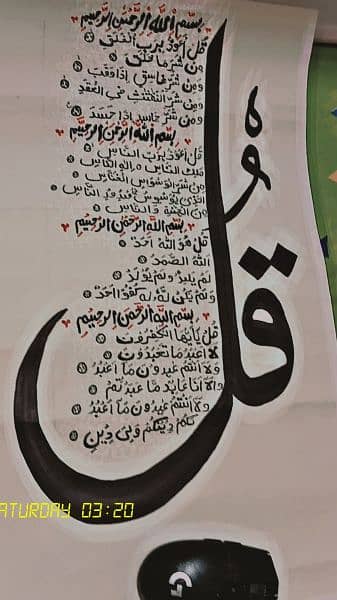 بسم الله الرحمن الرحيم
قل اعوذ برب الفلق
من شر ما خلق
ومن شر غاسق اذا وقب
ومن شر النفثت في العقد
ومن شر حاسد اذا حسد
بسم الله الرحمن الرحيم
قل اعوذ برب الناس
ملك الناس اله الناس
من شر الوسواس الخناس
الذي يوسوس في صدور الناس
من الجنة والناس
بسم الله الرحمن الرحيم
قل هو الله احد
الله الصمد
لم يلد ولم يولد
ولم يكن له كفوا احد
بسم الله الرحمن الرحيم
قل يايها الكفرون
لا اعبد ما تعبدون
ولا انتم عبدون ما اعبد
ولا انا عابد ما عبدتم
ولا انتم عبدون ما اعبد
لكم دينكم ولي دين
قل
ATURDAY 03:20
G